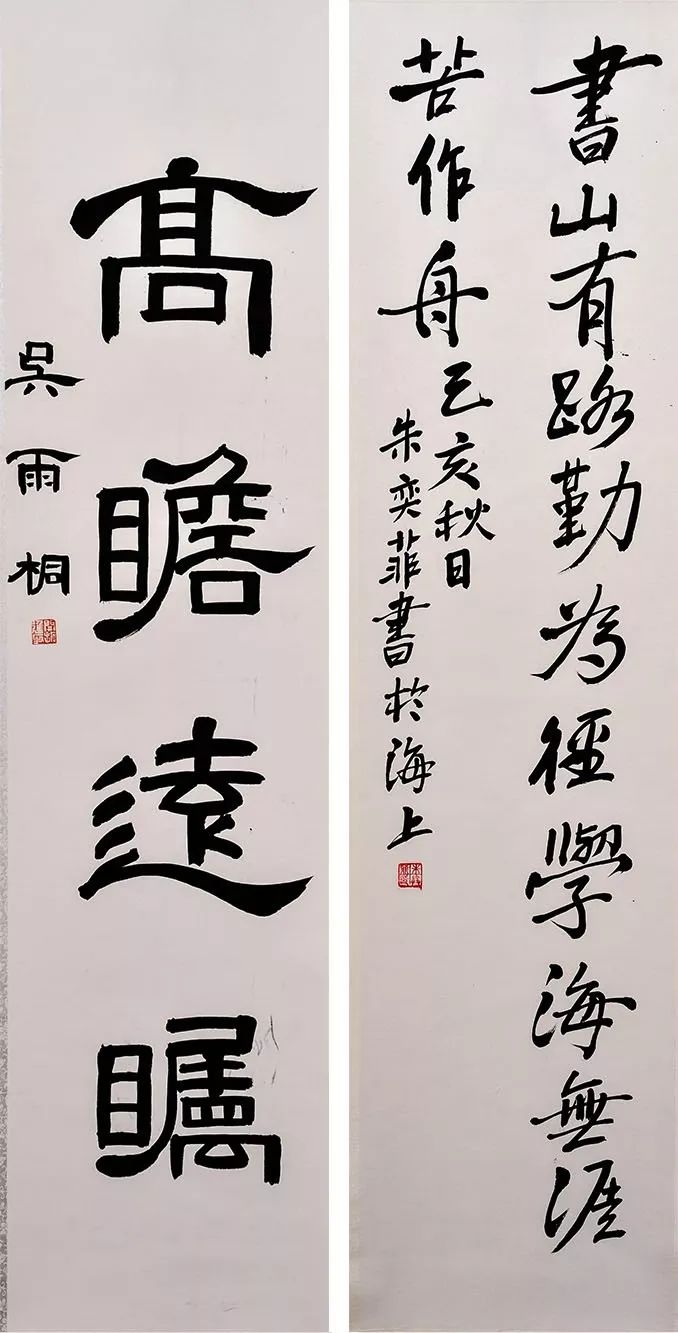 書山有路勤為徑學海無涯
苦作舟己亥秋日
朱奕菲書於海上
高瞻遠矚
吳雨桐